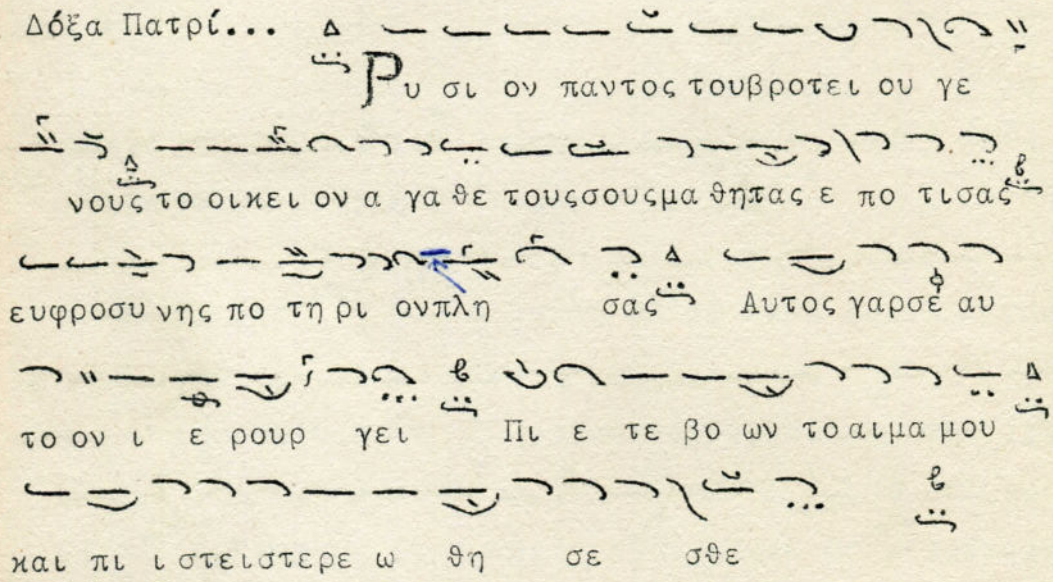 Δόξα Πατρί... Δ
Ρυ σι ον παντος τουβροτει ου γε
νους το οικει ον α γα θε τουςσουςμα θητας ε πο τισας
ευφροσυ νης πο τη ρι ονπλη σας Αυτος γαρσε αυ
το ον ι ε ρουρ γει Πι ε τε βο ων το αιμα μου
και πι ι στειστερε ω θη σε σθε